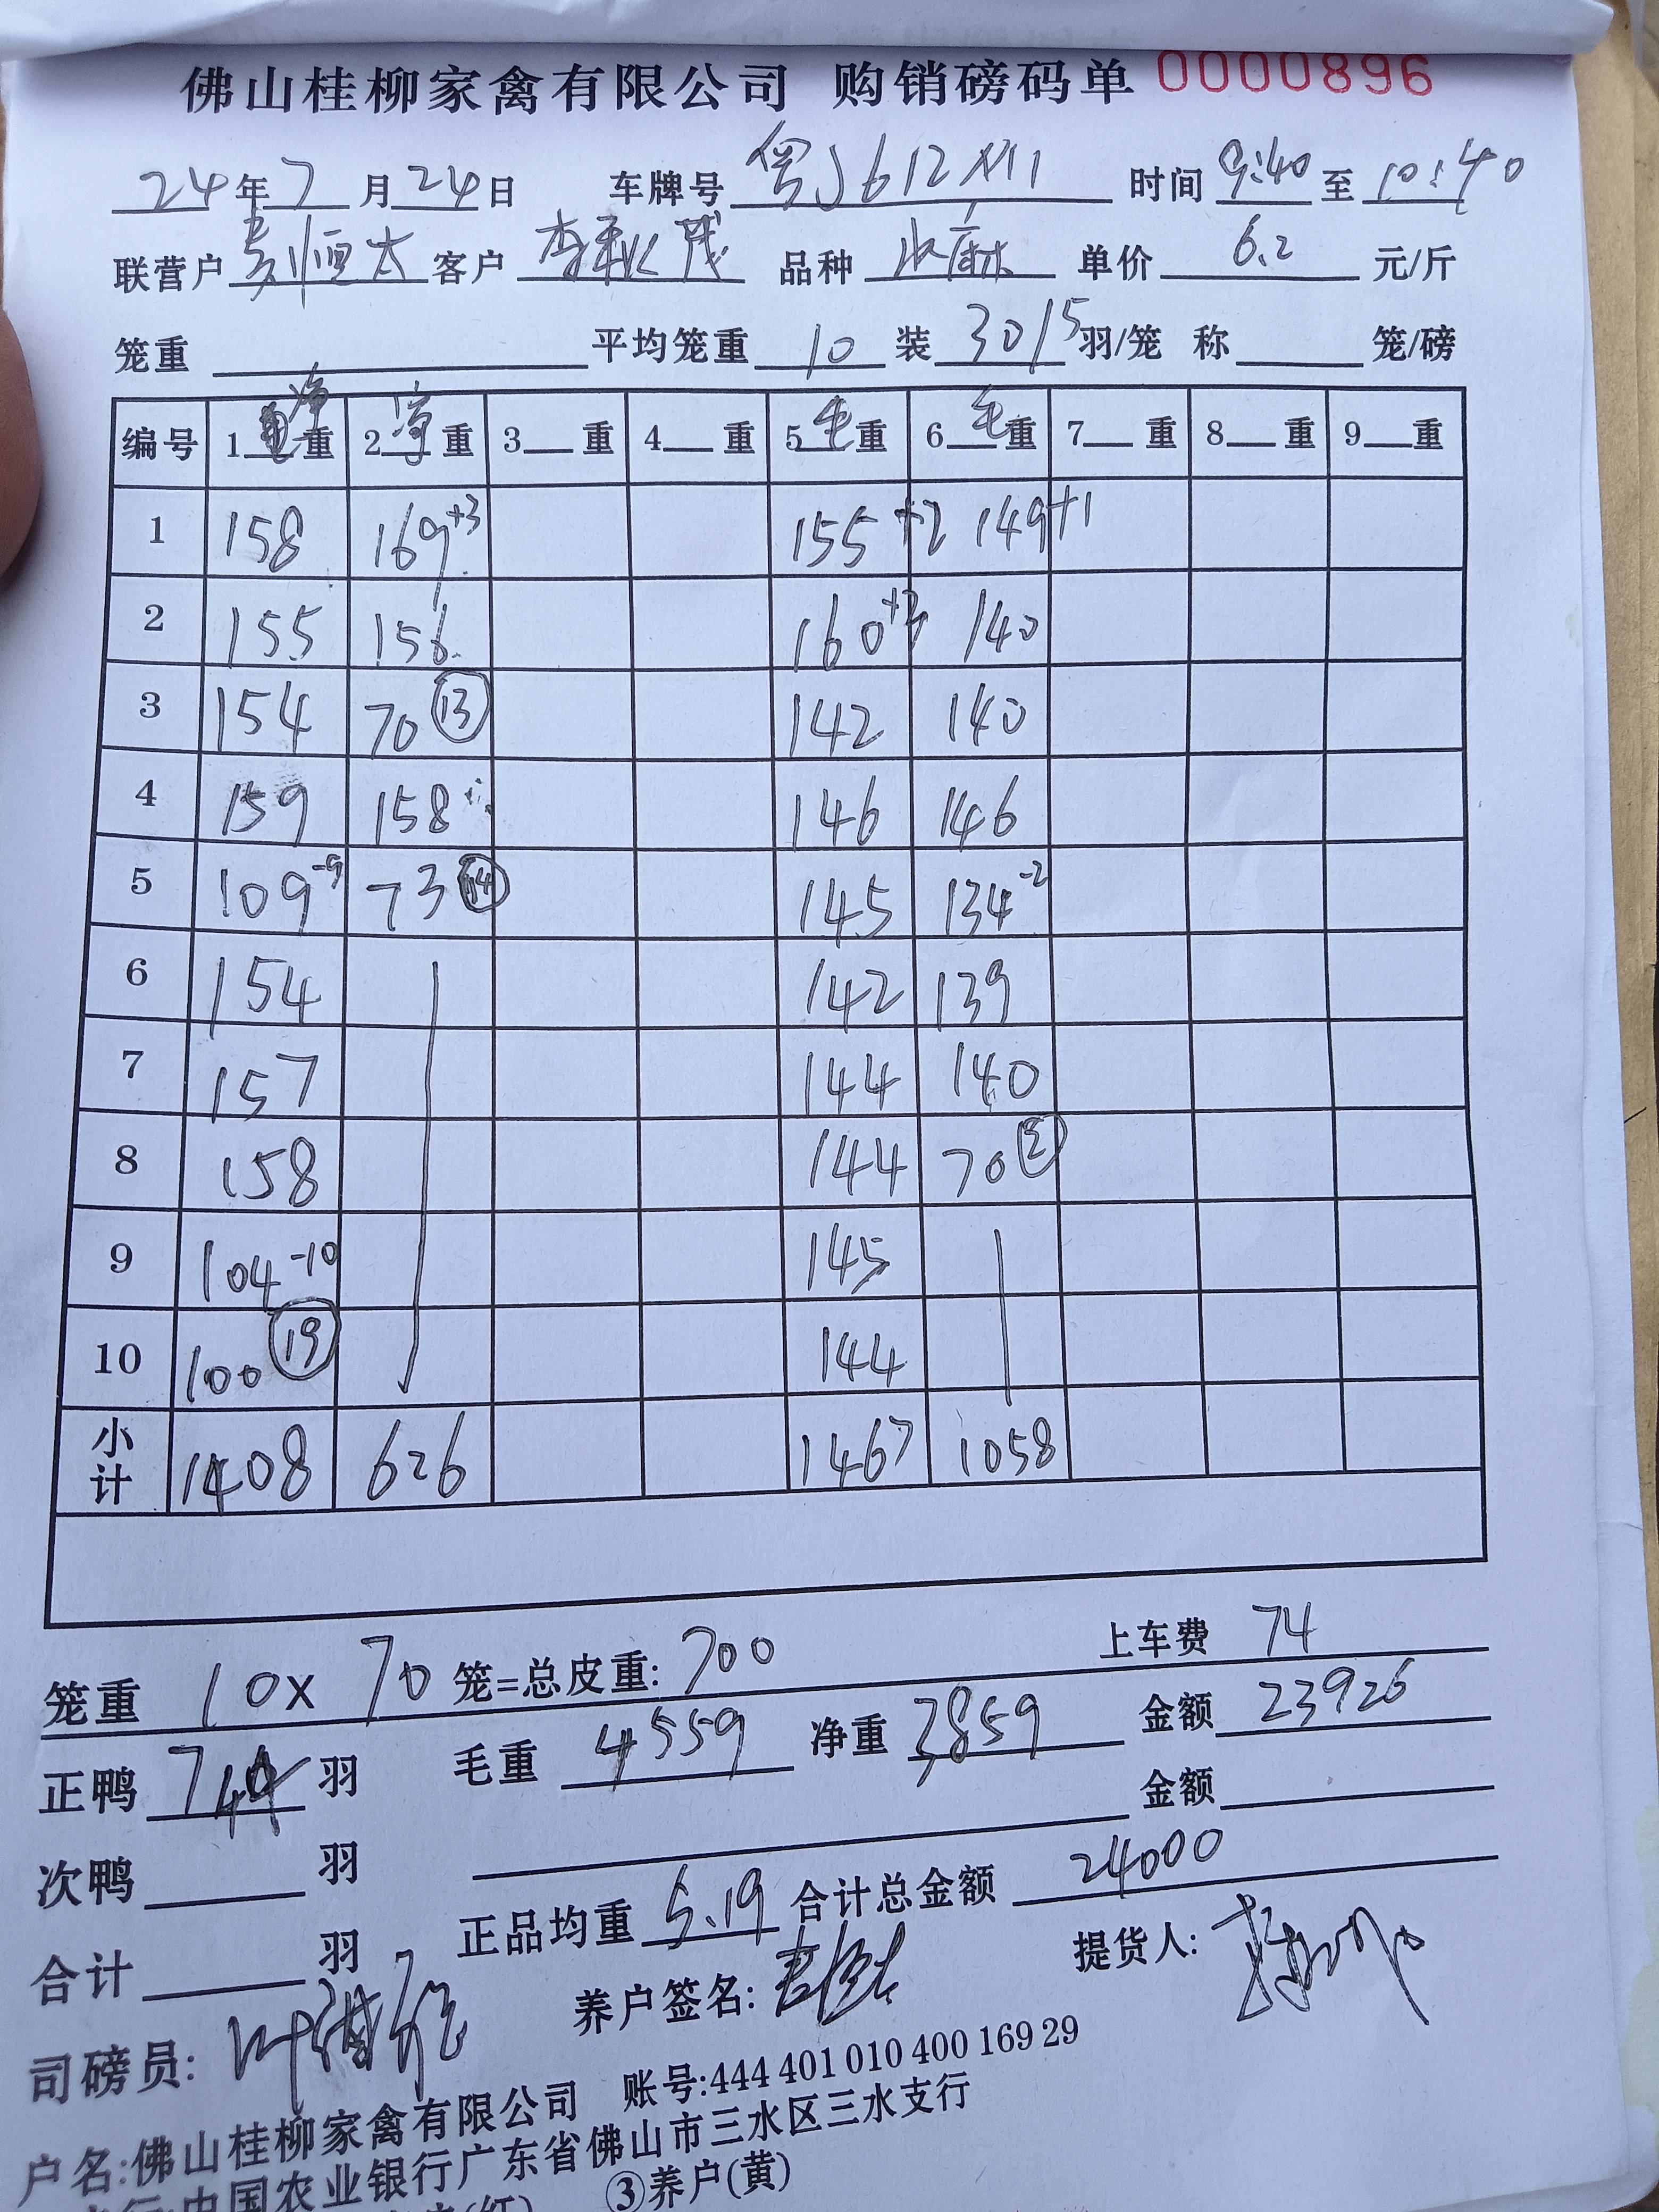 佛山桂柳家禽有限公司 购销磅码单 0000896
24年7月24日 车牌号 粤J612 时间 9:40 至 10:40
联营户 恒太 客户 李秋茂 品种 水麻 单价 6.2 元/斤
笼重 平均笼重 10 装 30/15 羽/笼 称 笼/磅
编号 1净重 2净重 3重 4重 5毛重 6毛重 7重 8重 9重
1 158 169+3 155+2 149+1
2 155 156 160 140
3 154 70 ⑬ 142 140
4 159 158 146 146
5 109-9 73 ⑭ 145 134-2
6 154 142 139
7 157 144 140
8 158 144 70
9 104-10 145
10 100 ⑲ 144
小计 1408 626 1467 1058
笼重 10x 70 笼=总皮重: 700 上车费 74
正鸭 羽 毛重 4559 净重 3859 金额 23926
次鸭 羽 金额
合计 羽 正品均重 5.19 合计总金额 24000
司磅员: 养户签名: 提货人:
户名:佛山桂柳家禽有限公司 账号:444 401 010 400 169 29
中国农业银行广东省佛山市三水区三水支行
(红) ③养户(黄)